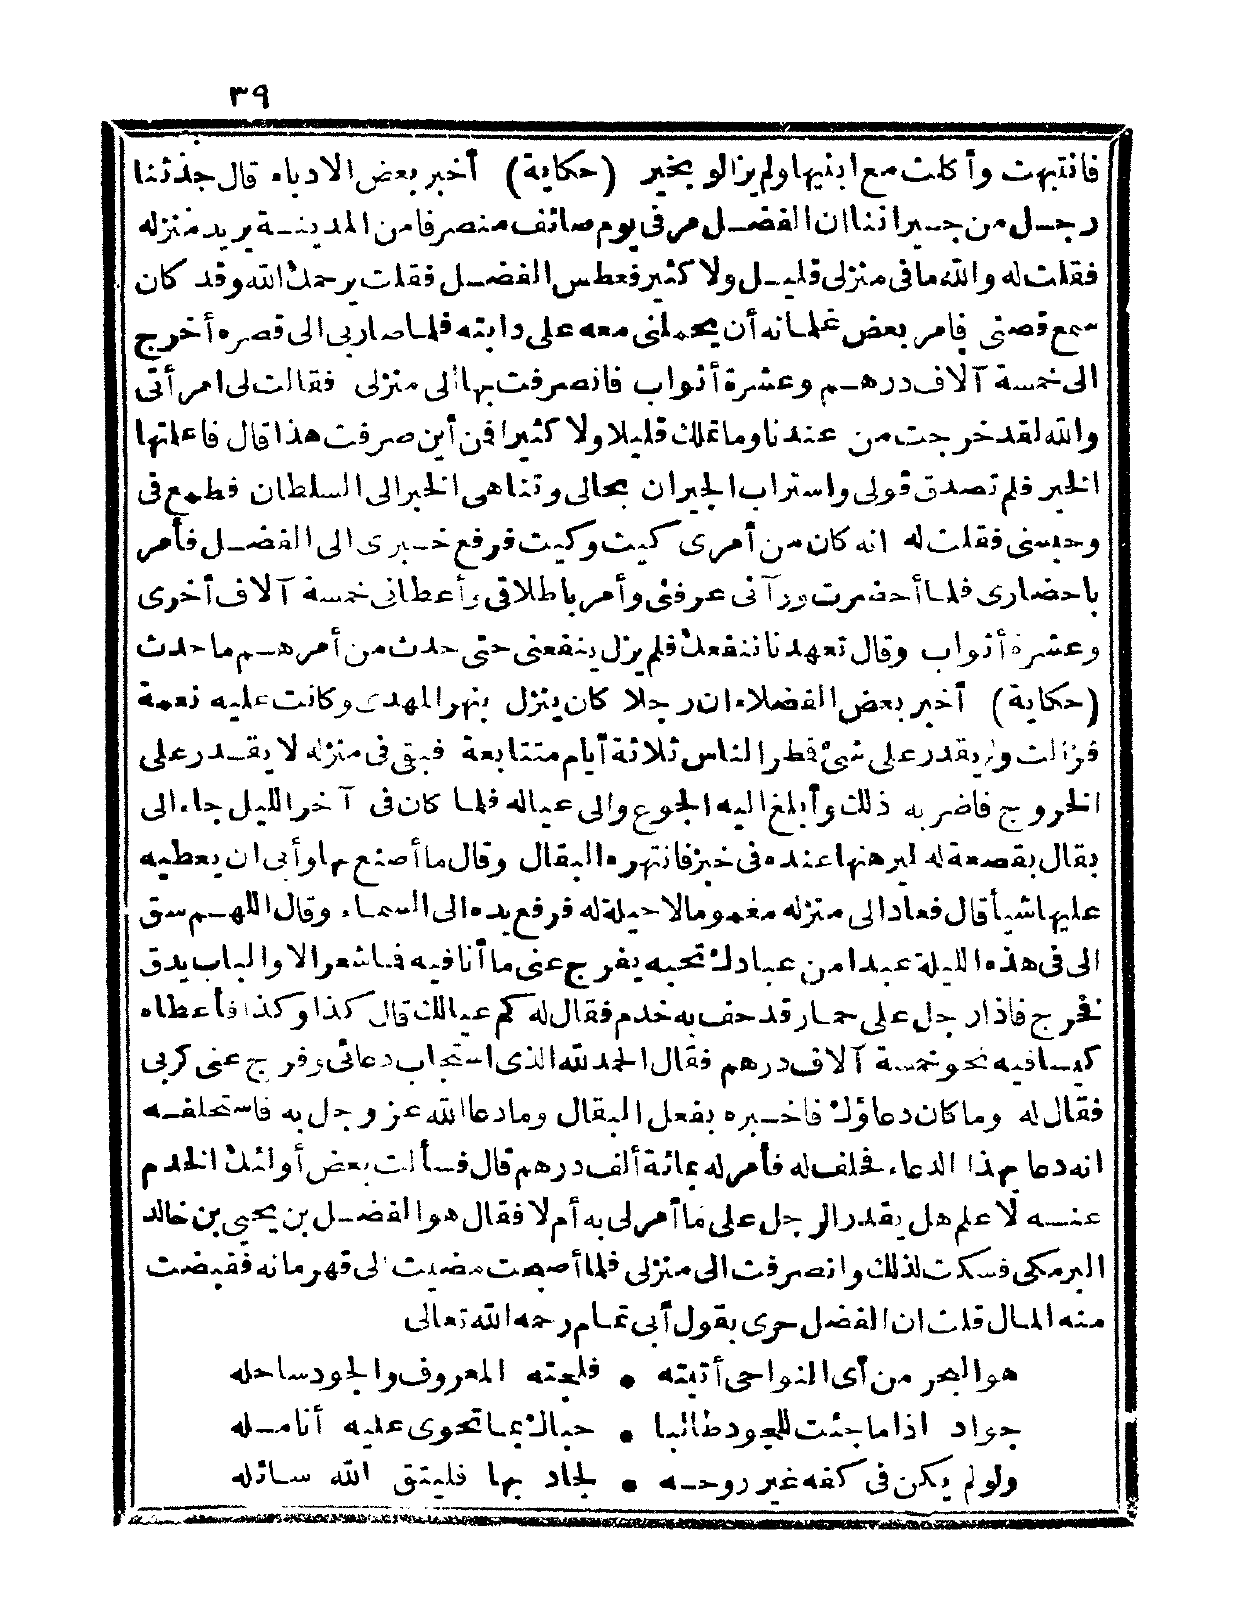 ٣٩
فانتبهت وأكلت مع ابنيها ولم يزالو بخير (حكاية) أخبر بعض الادباء قال حدثنا
رجل من جيراننا ان الفضل مر فى يوم صائف منصرفا من المدينة يريد منزله
فقلت له والله ما فى منزلى قليل ولا كثير فعطس الفضل فقلت يرحمك الله وقد كان
سمع قصتى فامر بعض غلمانه أن يحملنى معه على دابته فلما صار بى الى قصره أخرج
الى خمسة آلاف درهم وعشرة أثواب فانصرفت بها الى منزلى فقالت لى امرأتى
والله لقد خرجت من عندنا وما نملك قليلا ولا كثيرا فمن أين صرفت هذا قال فاعلمتها
الخبر فلم تصدق قولى واستراب الجيران بحالى وتناهى الخبر الى السلطان فطمع فى
وحبسنى فقلت له انه كان من أمرى كيت وكيت فرفع خبرى الى الفضل فأمر
باحضارى فلما أحضرت ورآنى عرفنى وأمر باطلاقى وأعطانى خمسة آلاف أخرى
وعشرة أثواب وقال تعهدنا ننفعك فلم يزل ينفعنى حتى حدث من أمرهم ما حدث
(حكاية) أخبر بعض الفضلاء ان رجلا كان ينزل بنهر المهدى وكانت عليه نعمة
فزالت ولم يقدر على شئ فطر الناس ثلاثة أيام متتابعة فبقى فى منزله لا يقدر على
الخروج فاضر به ذلك وأبلغ اليه الجوع والى عياله فلما كان فى آخر الليل جاء الى
بقال بقصعة له ليرهنها عنده فى خبز فانتهره البقال وقال ما أصنع بها وأبى ان يعطيه
عليها شيأ قال فعاد الى منزله مغموما لا حيلة له فرفع يده الى السماء وقال اللهم سق
الى فى هذه الليلة عبدا من عبادك تحبه يفرج عنى ما أنا فيه فما شعر الا والباب يدق
نخرج فاذا رجل على حمار قد حف به خدم فقال له كم عيالك قال كذا وكذا فأعطاه
كيسا فيه نحو خمسة آلاف درهم فقال الحمد لله الذى استجاب دعائى وفرج عنى كربى
فقال له وما كان دعاؤك فاخبره بفعل البقال وما دعا الله عز وجل به فاستحلفه
انه دعا بهذا الدعاء فحلف له فأمر له بمائة ألف درهم قال فسألت بعض أولئك الخدم
عنه لأعلم هل يقدر الرجل على ما أمر لى به أم لا فقال هو الفضل بن يحيى بن خالد
البرمكى فسكت لذلك وانصرفت الى منزلى فلما أصبحت مضيت الى قهرمانه فقبضت
منه المال قلت ان الفضل حرى بقول أبى تمام رحمه الله تعالى
هو البحر من أى النواحى أتيته • فلجته المعروف والجود ساحله
جواد اذا ما جئت للجود طالبا • حباك بما تحوى عليه أنامله
ولو لم يكن فى كفه غير روحه • لجاد بها فليتق الله سائله